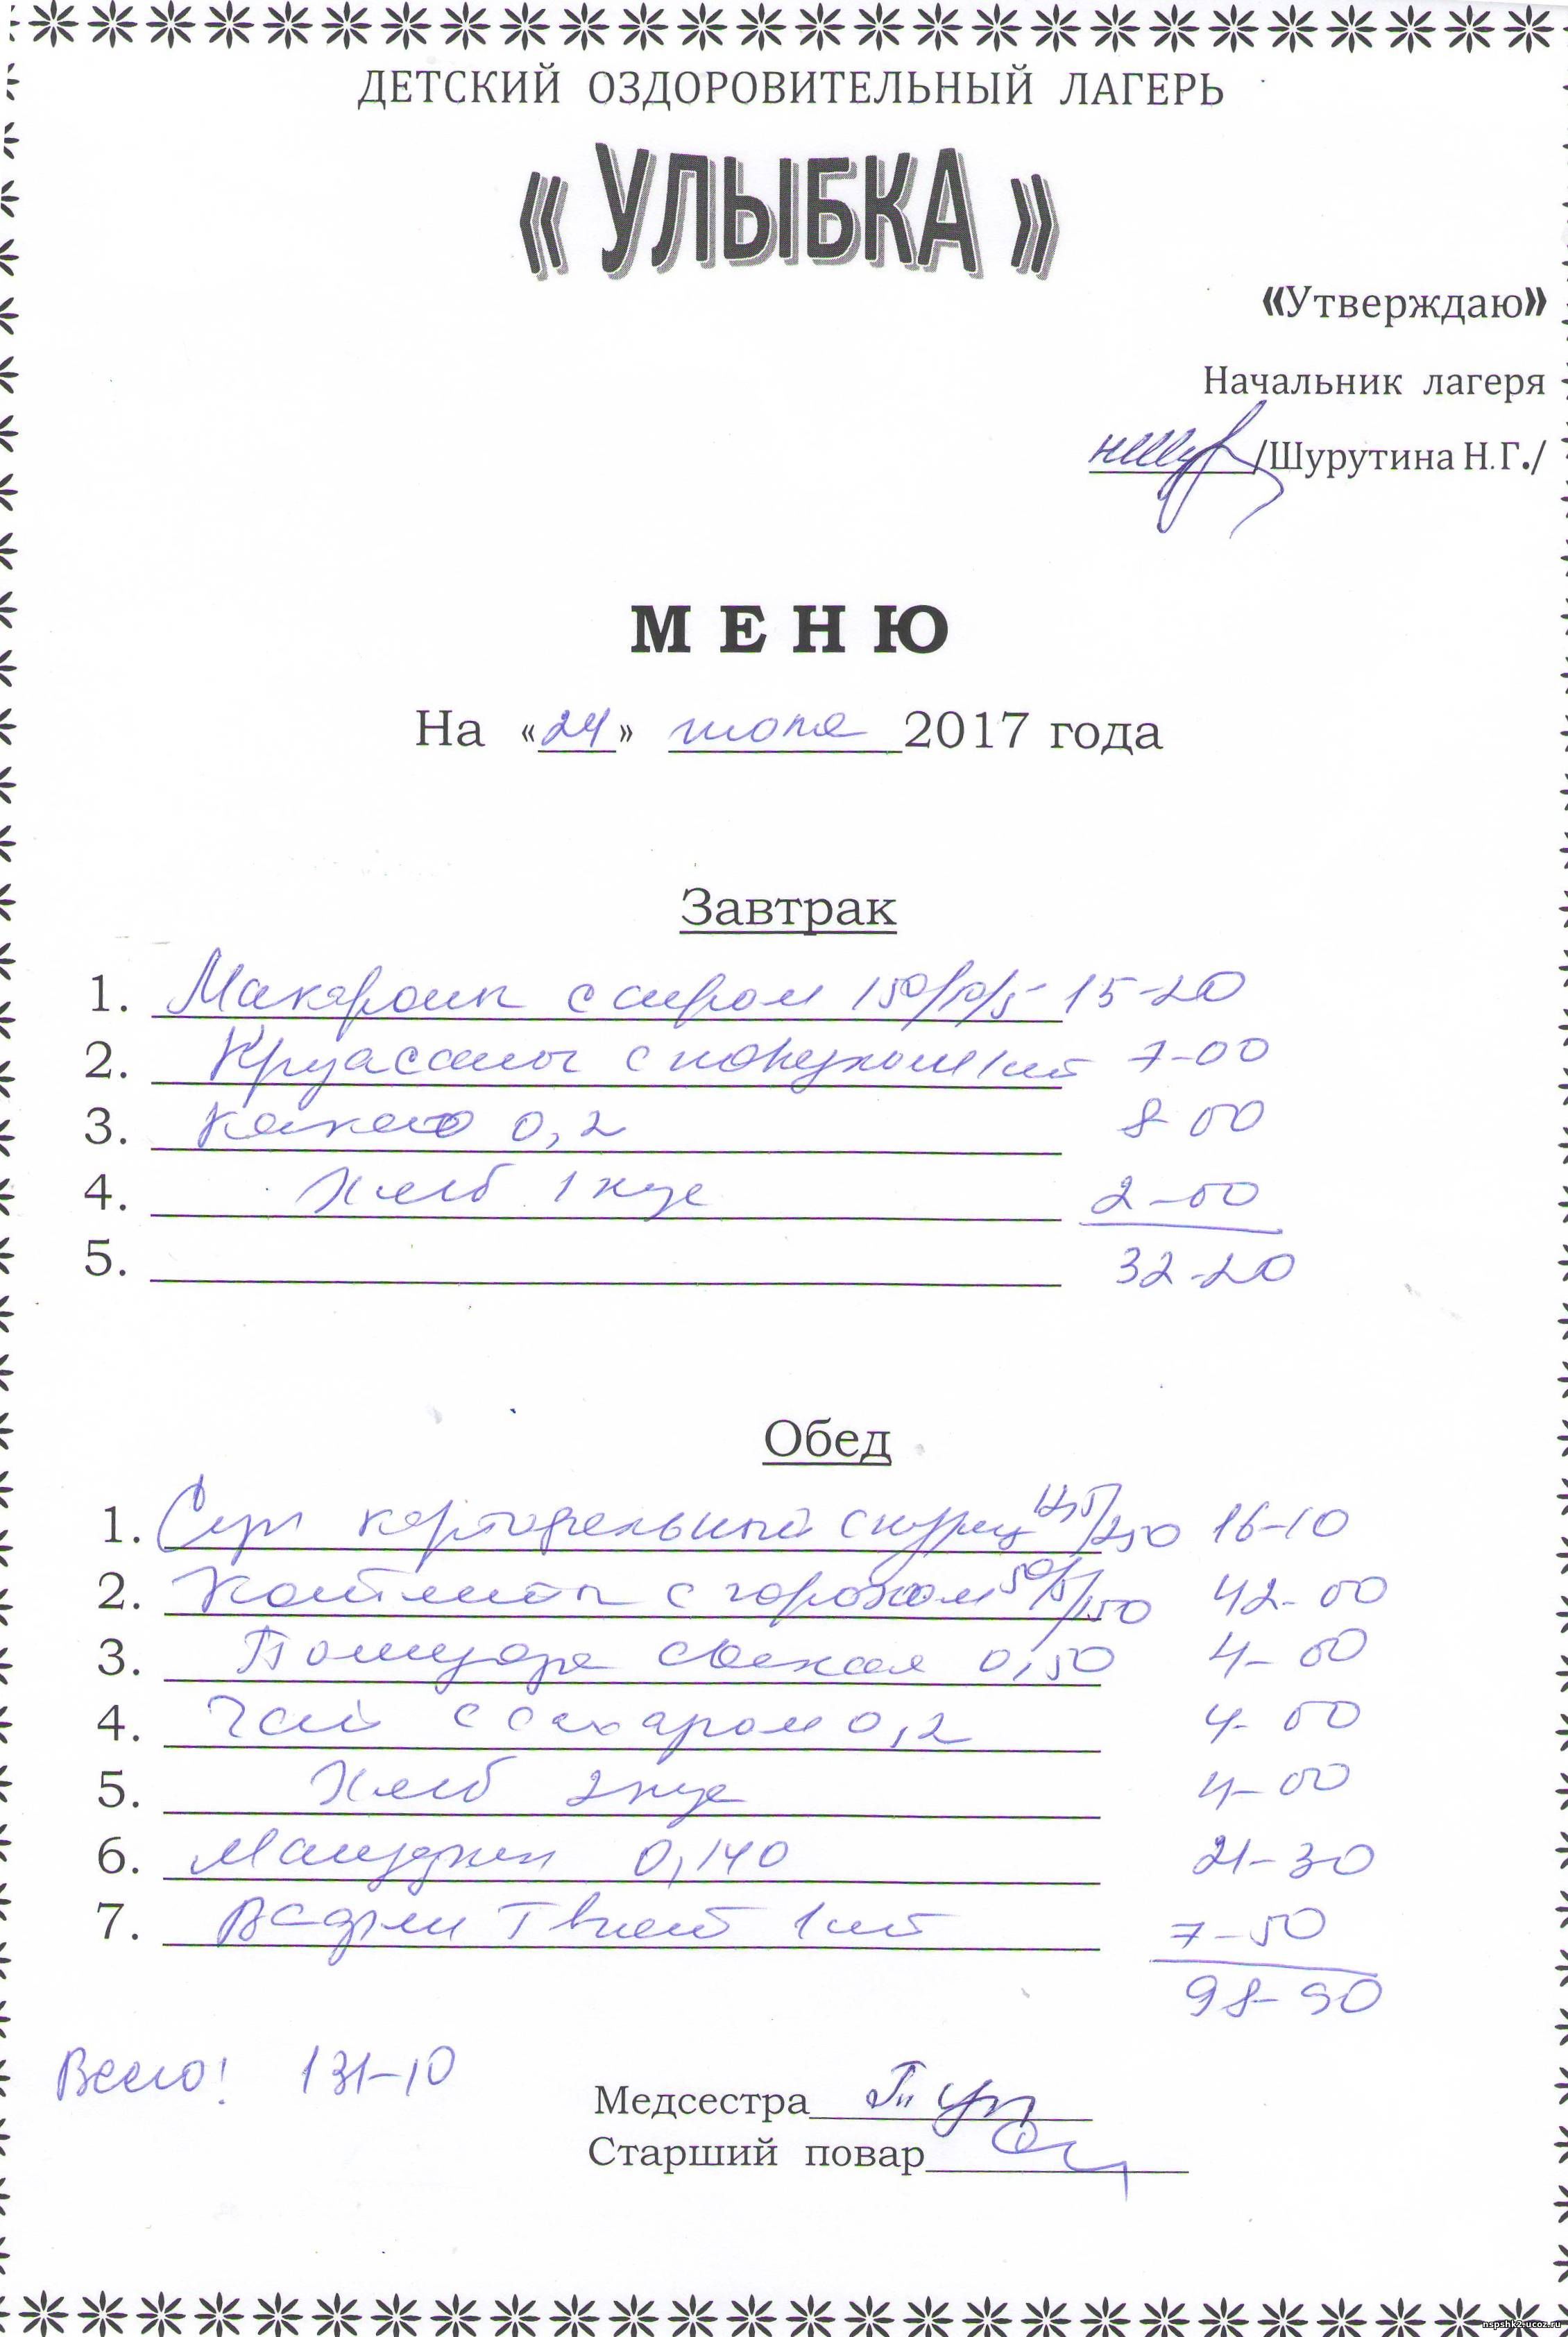 ДЕТСКИЙ ОЗДОРОВИТЕЛЬНЫЙ ЛАГЕРЬ
« УЛЫБКА »
«Утверждаю»
Начальник лагеря
/Шурутина Н.Г./
МЕНЮ
На «24» июля 2017 года
Завтрак
1. Макароны с сыром 150/10/5 15-20
2. Круассаны с 1шт 7-00
3. Какао 0,2 8-00
4. Хлеб 1 кус 2-00
5. 32-20
Обед
1. Суп картофельный с куриц 12,5/250 16-10
2. Котлета с горохом 50/5/150 42-00
3. Помидора свежая 0,50 4-00
4. Чай с сахаром 0,2 4-00
5. Хлеб 2 кус 4-00
6. 0,140 21-30
7. Вафли Твист 1шт 7-50
98-90
Всего! 131-10
Медсестра
Старший повар
nspshk2.ucoz.ru